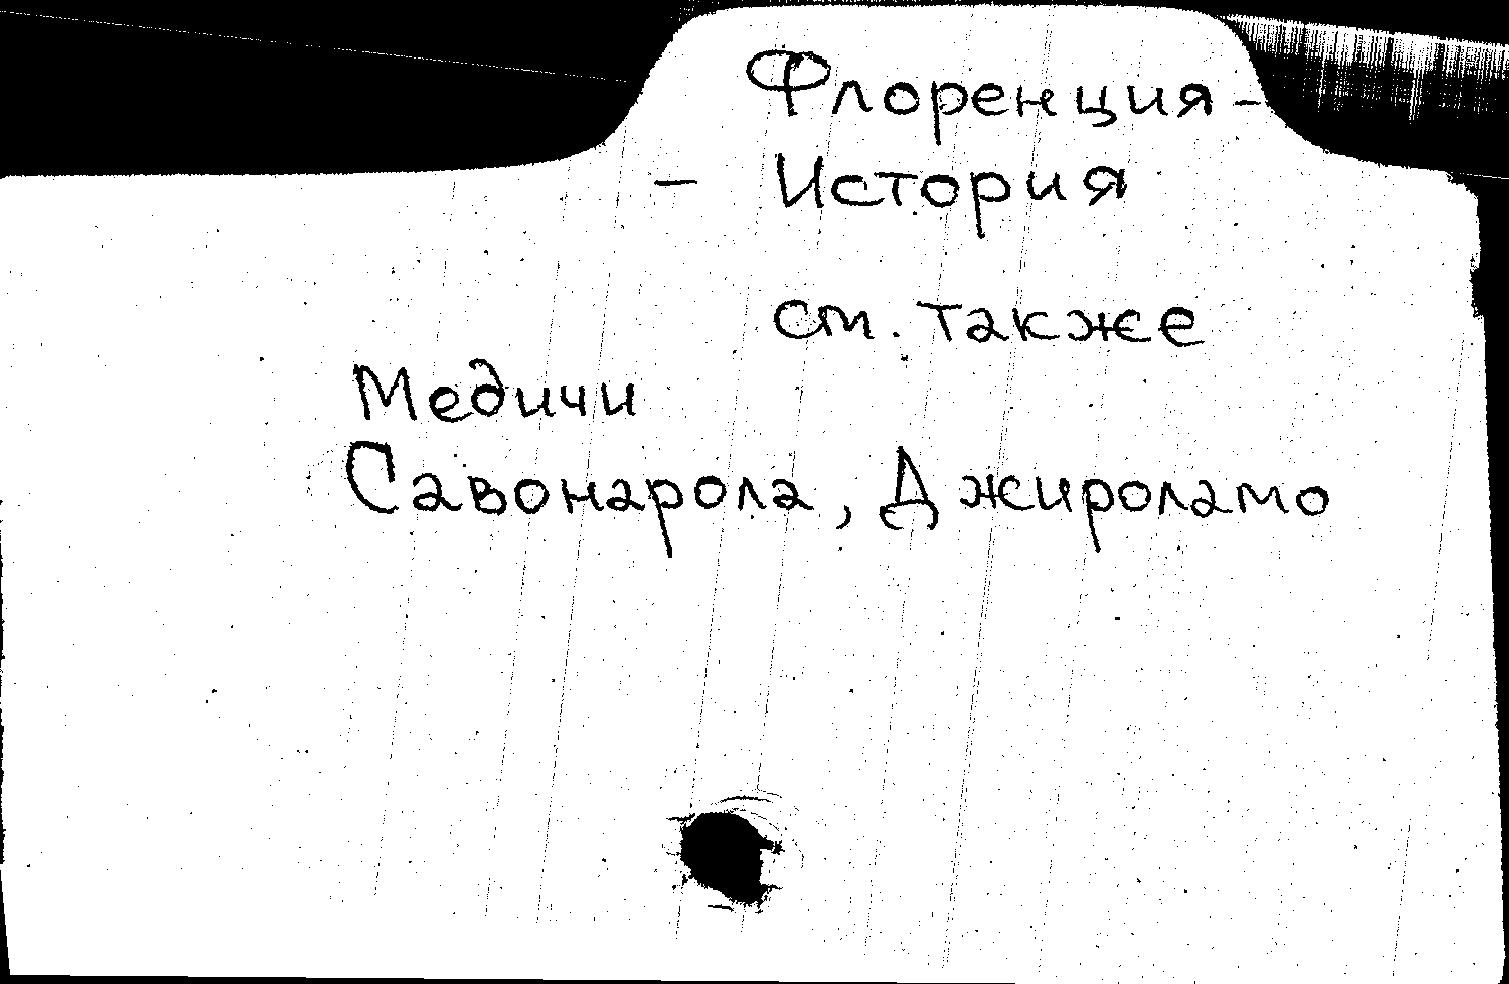 Флоренция -
- История
см. также
Медичи
Савонарола, Джироламо